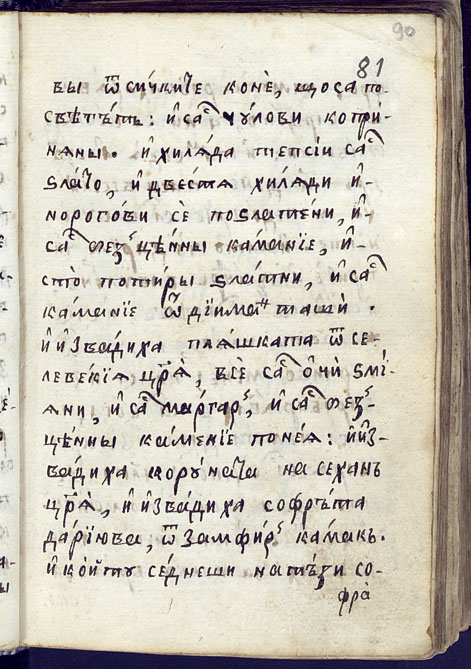 90
81
вы ѿ сѝчкиⷮе конѐ, щоса по-
свѣтѣтъ: и҆ саⷭ҇ чꙋлови копри́-
нѧны. и҆ хилѧ́да тепсіи саⷭ҇
ѕла́ⷮо, и҆ двестѧ хилѧ́ди и҆-
норого́ви сѐ послате́ни, и҆-
саⷭ҇ без̾ цѣ́нны ка́мѧнїе, и҆-
сто̀ поти́ры ѕла́тни, и҆ саⷭ҇
ка́мѧнїе ѿ дїимаⷩ҇таши̇̀.
и҆ и҆зва́диха плѧ́шката ѿ се-
левкїѧ цр҃ѧ̀, всѐ саⷭ҇ о҆чѝ ѕмі́-
ѧни, и҆ саⷭ҇ ма́ргар̾, и҆ саⷭ҇ без̾-
цѣ́нны ка́менїе поне́ѧ: и҆ и҆з-
ва́диха корꙋ́наⷮа на сеханъ
цр҃ѧ̀, и҆ и҆зва́диха софръта
да́рїюва, ѿ замфи́р̾ ка́макъ.
и҆ ко́йту се́днеши натѣ́зи со-
фра̀